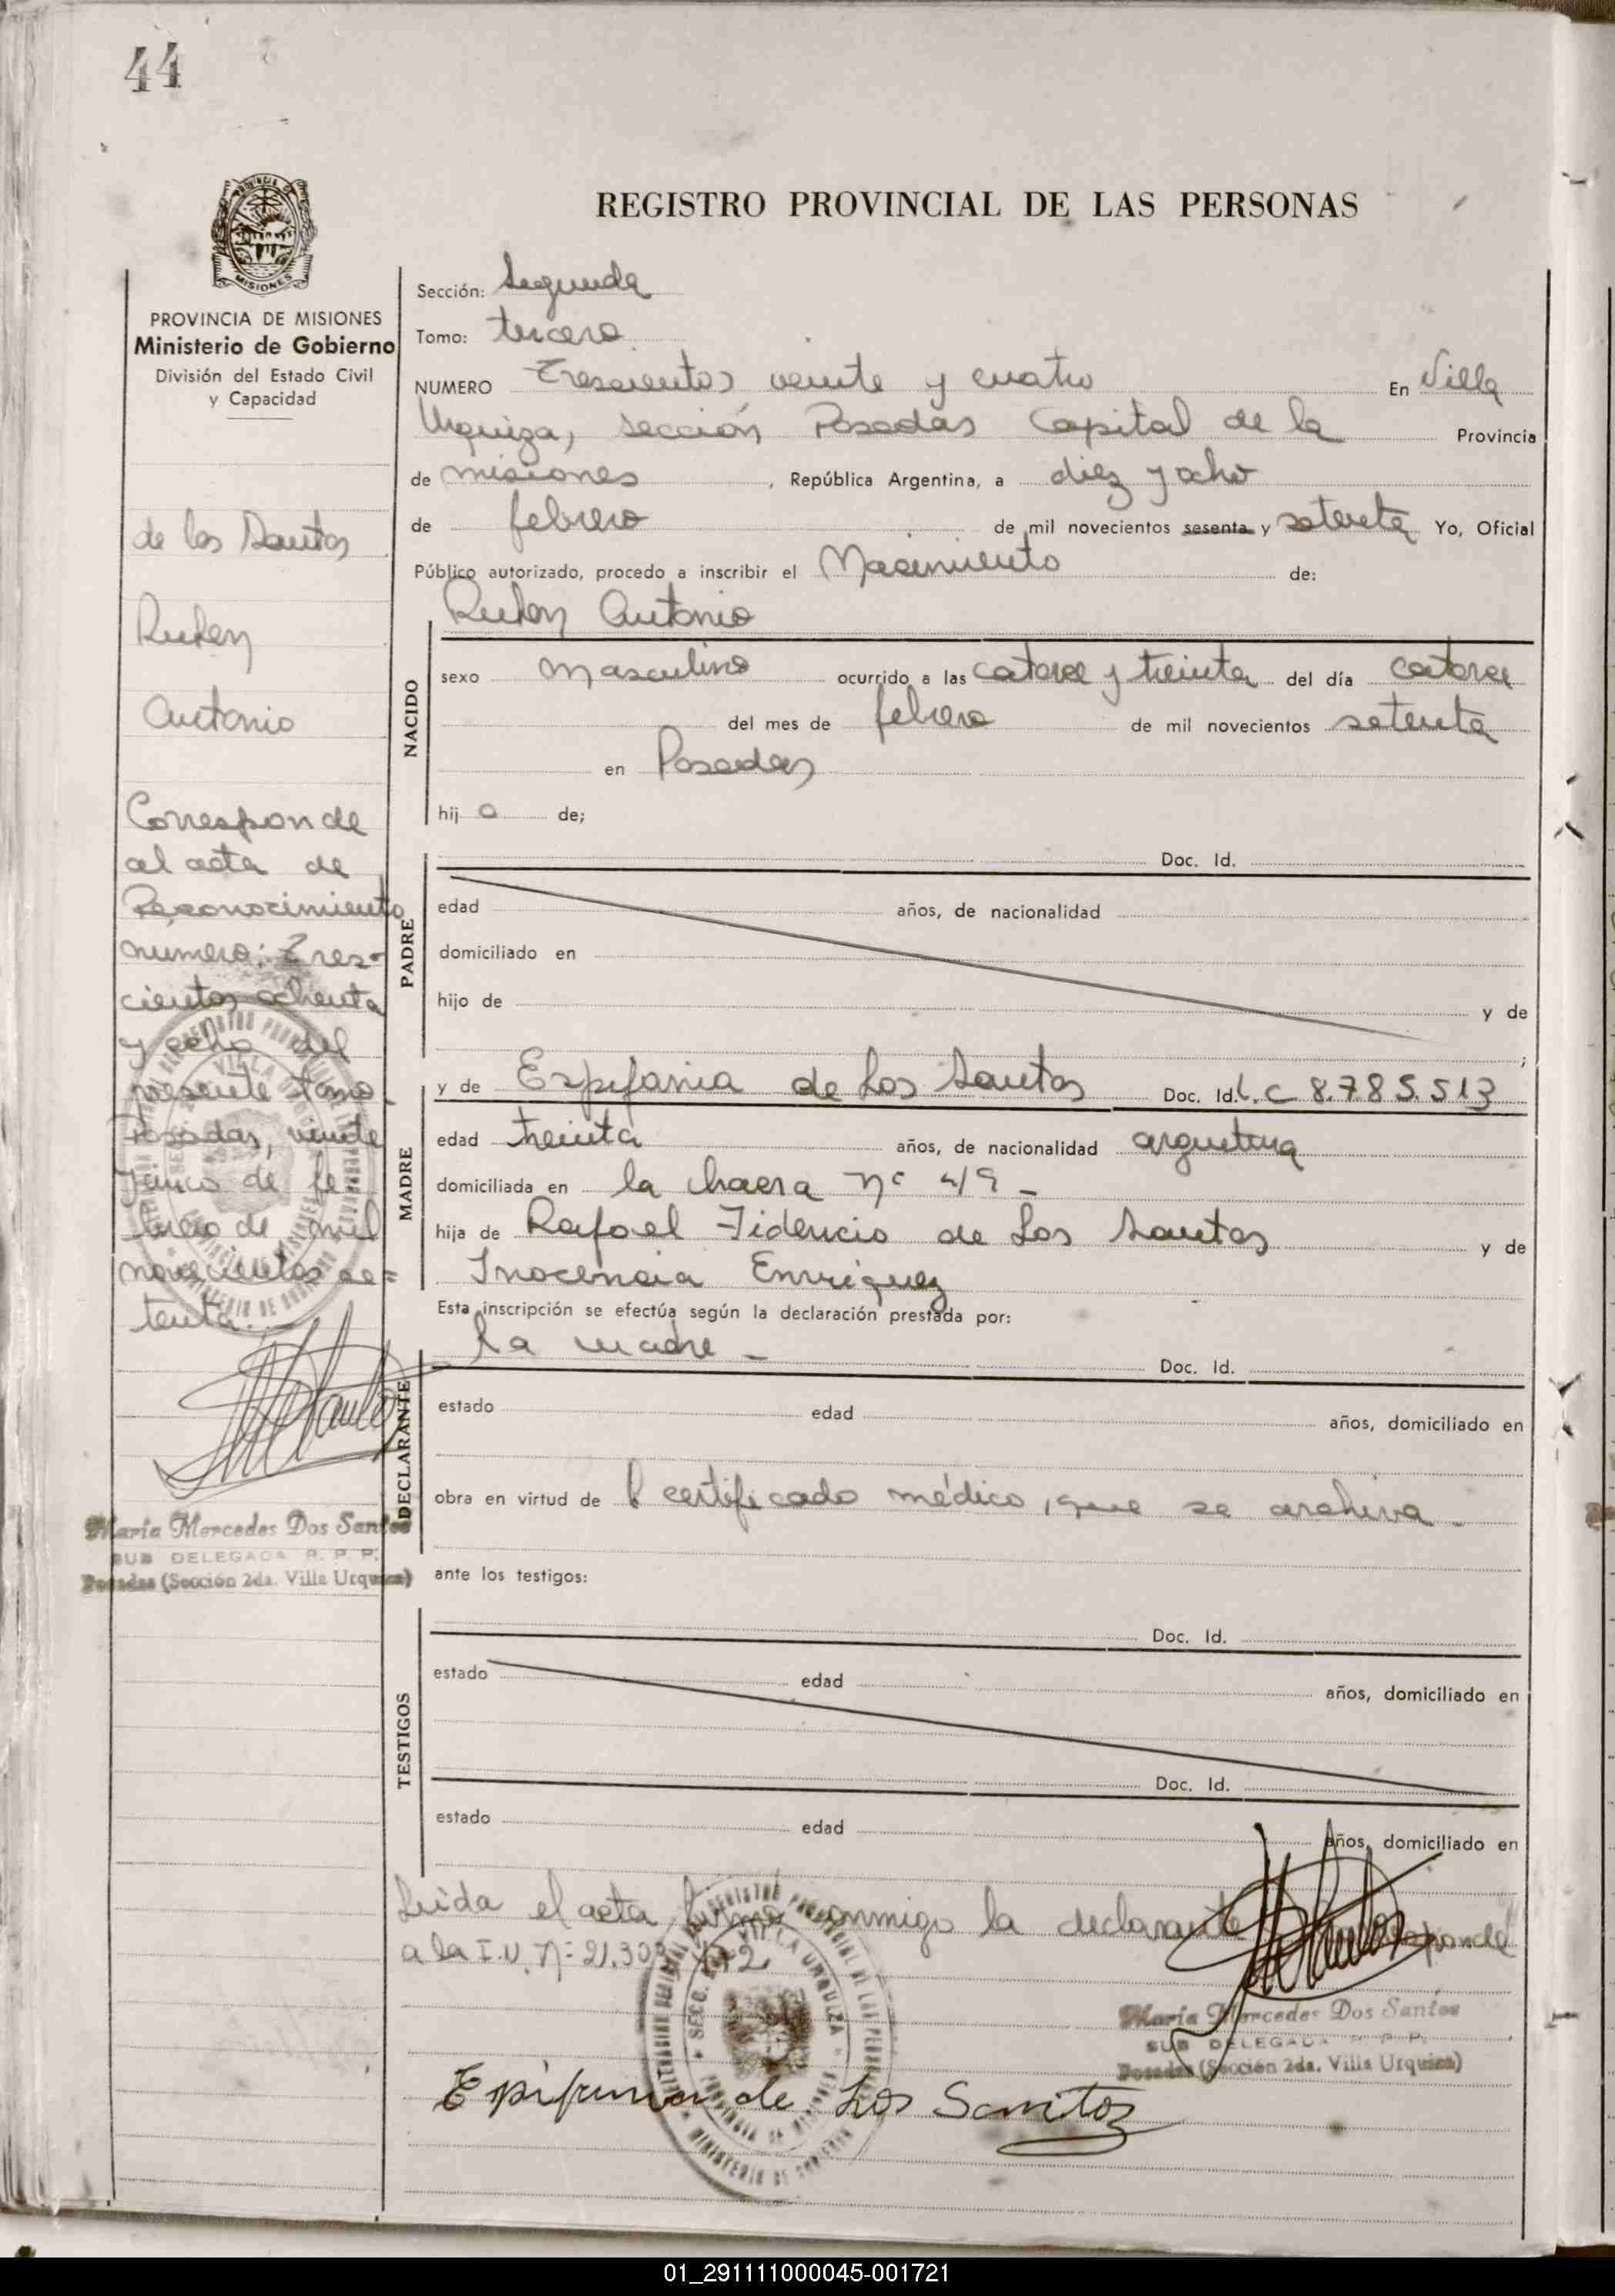 44
REGISTRO PROVINCIAL DE LAS PERSONAS
MISIONES
PROVINCIA DE MISIONES
Ministerio de Gobierno
División del Estado Civil
y Capacidad
de los Santos
Ruben
Antonio
Corresponde
al acta de
Reconocimiento
número: Tres-
cientos ochenta
y ocho del
presente tomo.
Posadas, veinte
y cinco de fe-
brero de mil
novecientos se=
tenta.
María Mercedes Dos Santos
SUB DELEGADA R. P. P.
Posadas (Sección 2da. Villa Urquiza)
Sección: Segunda
Tomo: tercero
NUMERO Trescientos veinte y cuatro En Villa
Urquiza, sección Posadas Capital de la Provincia
de misiones, República Argentina, a diez y ocho
de febrero de mil novecientos sesenta y setenta Yo, Oficial
Público autorizado, procedo a inscribir el Nacimiento de:
Ruben Antonio
NACIDO
sexo masculino ocurrido a las catorce y treinta del día catorce
del mes de febrero de mil novecientos setenta
en Posadas
hij o de;
PADRE
Doc. Id.
edad años, de nacionalidad
domiciliado en
hijo de y de
;
MADRE
y de Espifania de Los Santos Doc. Id. L.C 8.785.513
edad treinta años, de nacionalidad argentina
domiciliada en la chacra nº 49 -
hija de Rafael Fidencio de Los Santos y de
Inocencia Enriquez
Esta inscripción se efectúa según la declaración prestada por:
DECLARANTE
la madre - Doc. Id.
estado edad años, domiciliado en
obra en virtud de l certificado médico, que se archiva -
ante los testigos:
TESTIGOS
Doc. Id.
estado edad años, domiciliado en
Doc. Id.
estado edad años, domiciliado en
Leida el acta, firma conmigo la declarante
a la I.N. Nº 21.30
María Mercedes Dos Santos
SUB DELEGADA R. P. P.
Posadas (Sección 2da. Villa Urquiza)
Epifania de Los Santos
01_291111000045-001721